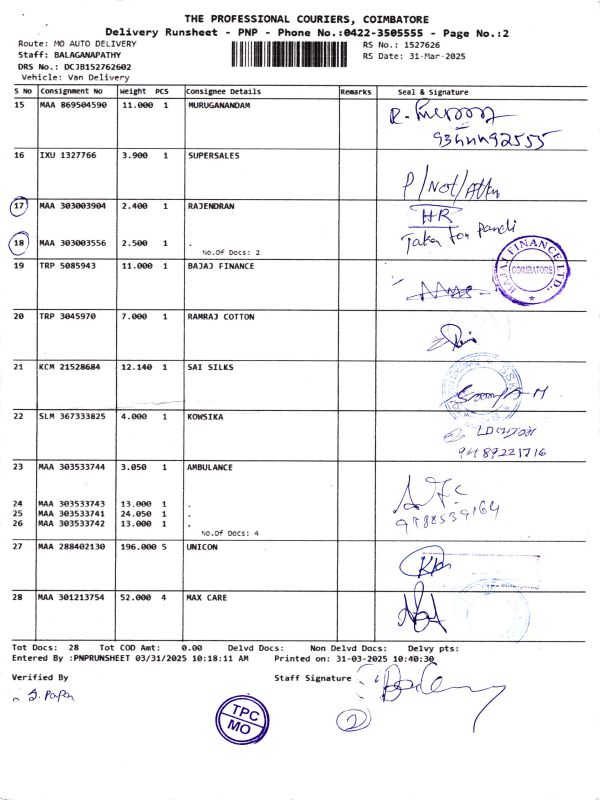 THE PROFESSIONAL COURIERS, COIMBATORE
Delivery Runsheet - PNP - Phone No.:0422-3505555 - Page No.:2
Route: MO AUTO DELIVERY RS No.: 1527626
Staff: BALAGANAPATHY RS Date: 31-Mar-2025
DRS No.: DCJB152762602
Vehicle: Van Delivery
S No Consignment No Weight PCS Consignee Details Remarks Seal & Signature
15 MAA 869504590 11.000 1 MURUGANANDAM
9344492555
16 IXU 1327766 3.900 1 SUPERSALES
P/Not/Attn
17 MAA 303003904 2.400 1 RAJENDRAN
HR
Taken for Pandi
18 MAA 303003556 2.500 1 .
No.Of Docs: 2
19 TRP 5085943 11.000 1 BAJAJ FINANCE
BAJAJ FINANCE LTD.,
COIMBATORE
20 TRP 3045970 7.000 1 RAMRAJ COTTON
21 KCM 21528684 12.140 1 SAI SILKS
22 SLM 367333825 4.000 1 KOWSIKA
9489221716
23 MAA 303533744 3.050 1 AMBULANCE
9788539164
24 MAA 303533743 13.000 1 .
25 MAA 303533741 24.050 1 .
26 MAA 303533742 13.000 1 .
No.Of Docs: 4
27 MAA 288402130 196.000 5 UNICON
28 MAA 301213754 52.000 4 MAX CARE
Tot Docs: 28 Tot COD Amt: 0.00 Delvd Docs: Non Delvd Docs: Delvy pts:
Entered By :PNPRUNSHEET 03/31/2025 10:18:11 AM Printed on: 31-03-2025 10:40:30
Verified By Staff Signature
TPC
MO
2